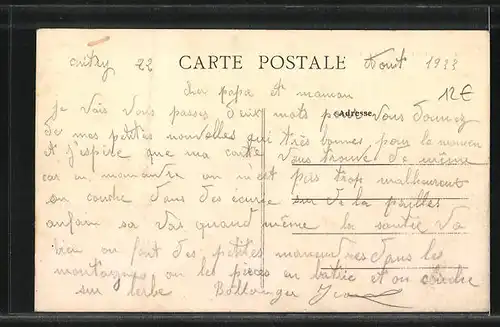 22 CARTE POSTALE Aout 1933
12€
cher papa et maman
je vais vous passer deux mots pour vous donner
Adresse
de mes petites nouvelles qui très bonnes pour le moment
et j'espère que ma carte vous trouve de même
car en on n'est pas trop malheureux
on couche dans des écurie sur de la pailles
sa vas quand même la santé va
bien on fait des petites manœuvres dans les
montagnes, on les pièces en batrie et on couche
sur lerbe